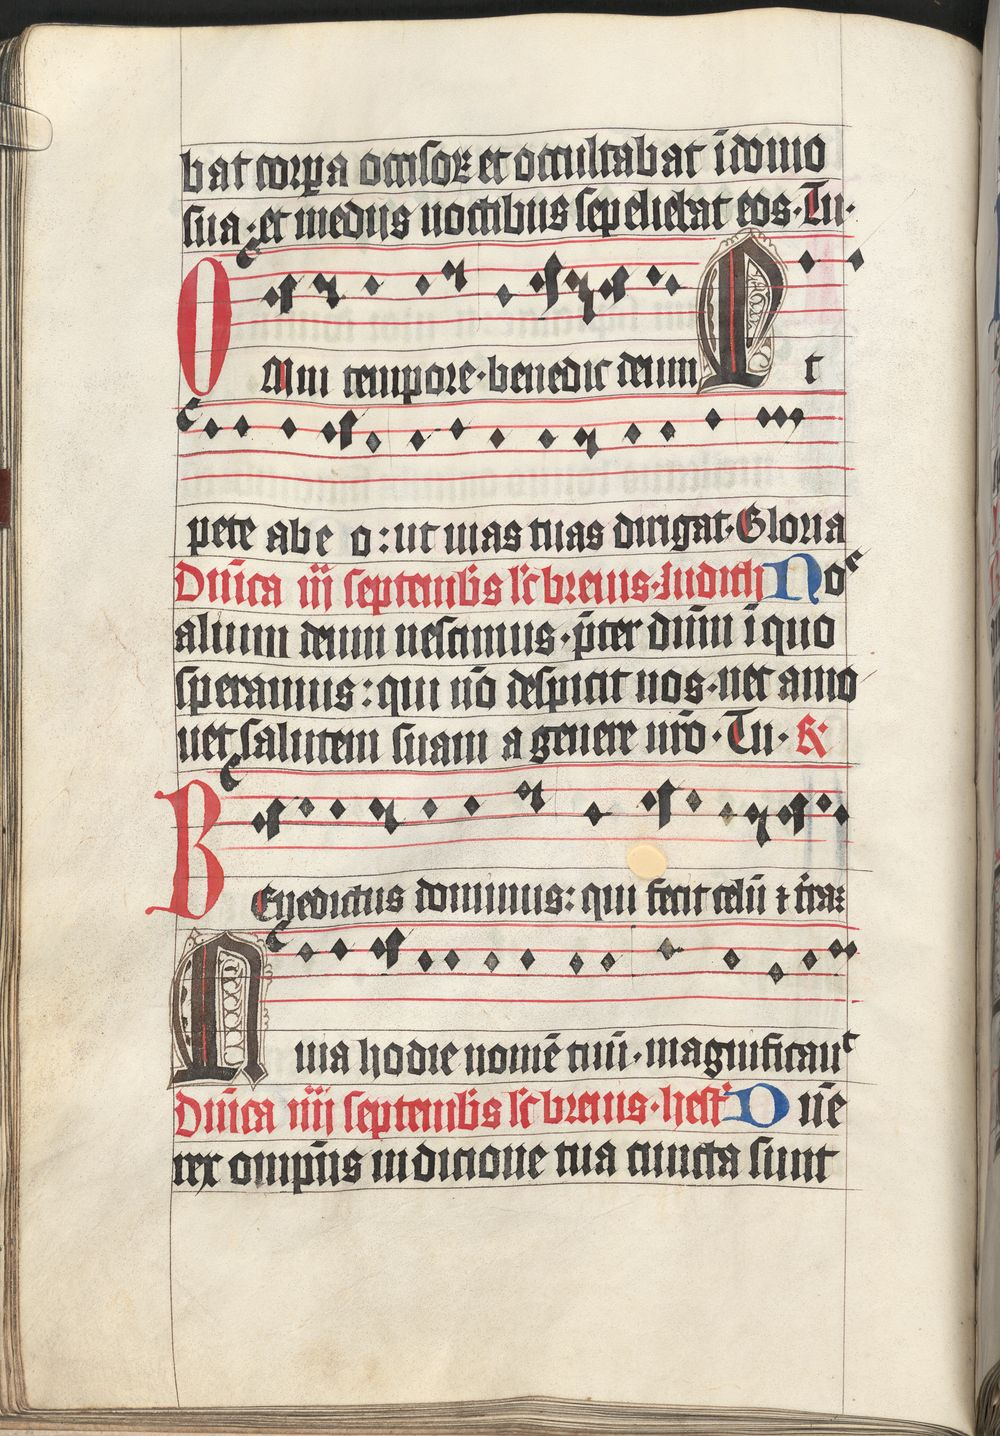 bat corpa occisoꝝ et occultabat ī domo
sua· et medijs noctibus sepeliebat eos· Tu·
OMni tempore· benedic deum Et
pete ab eo : ut uias tuas dirigat· Gloria
Dn̄ica iij septembis sc̄ breuis· Judith Nos
alium deum nescimus· p̄ter dn̄m ī quo
speramus : qui nō despicit nos· nec amo
uet salutem suam a genere nr̄o· Tu· ℟
BEnedictus dominus : qui fecit celū ⁊ t̄ra:
Quia hodie nomē tuū· magnificauit
Dn̄ica iiij septembis sc̄ breuis· hest' Dn̄e
rex omp̄ns in dicione tua cuncta sunt